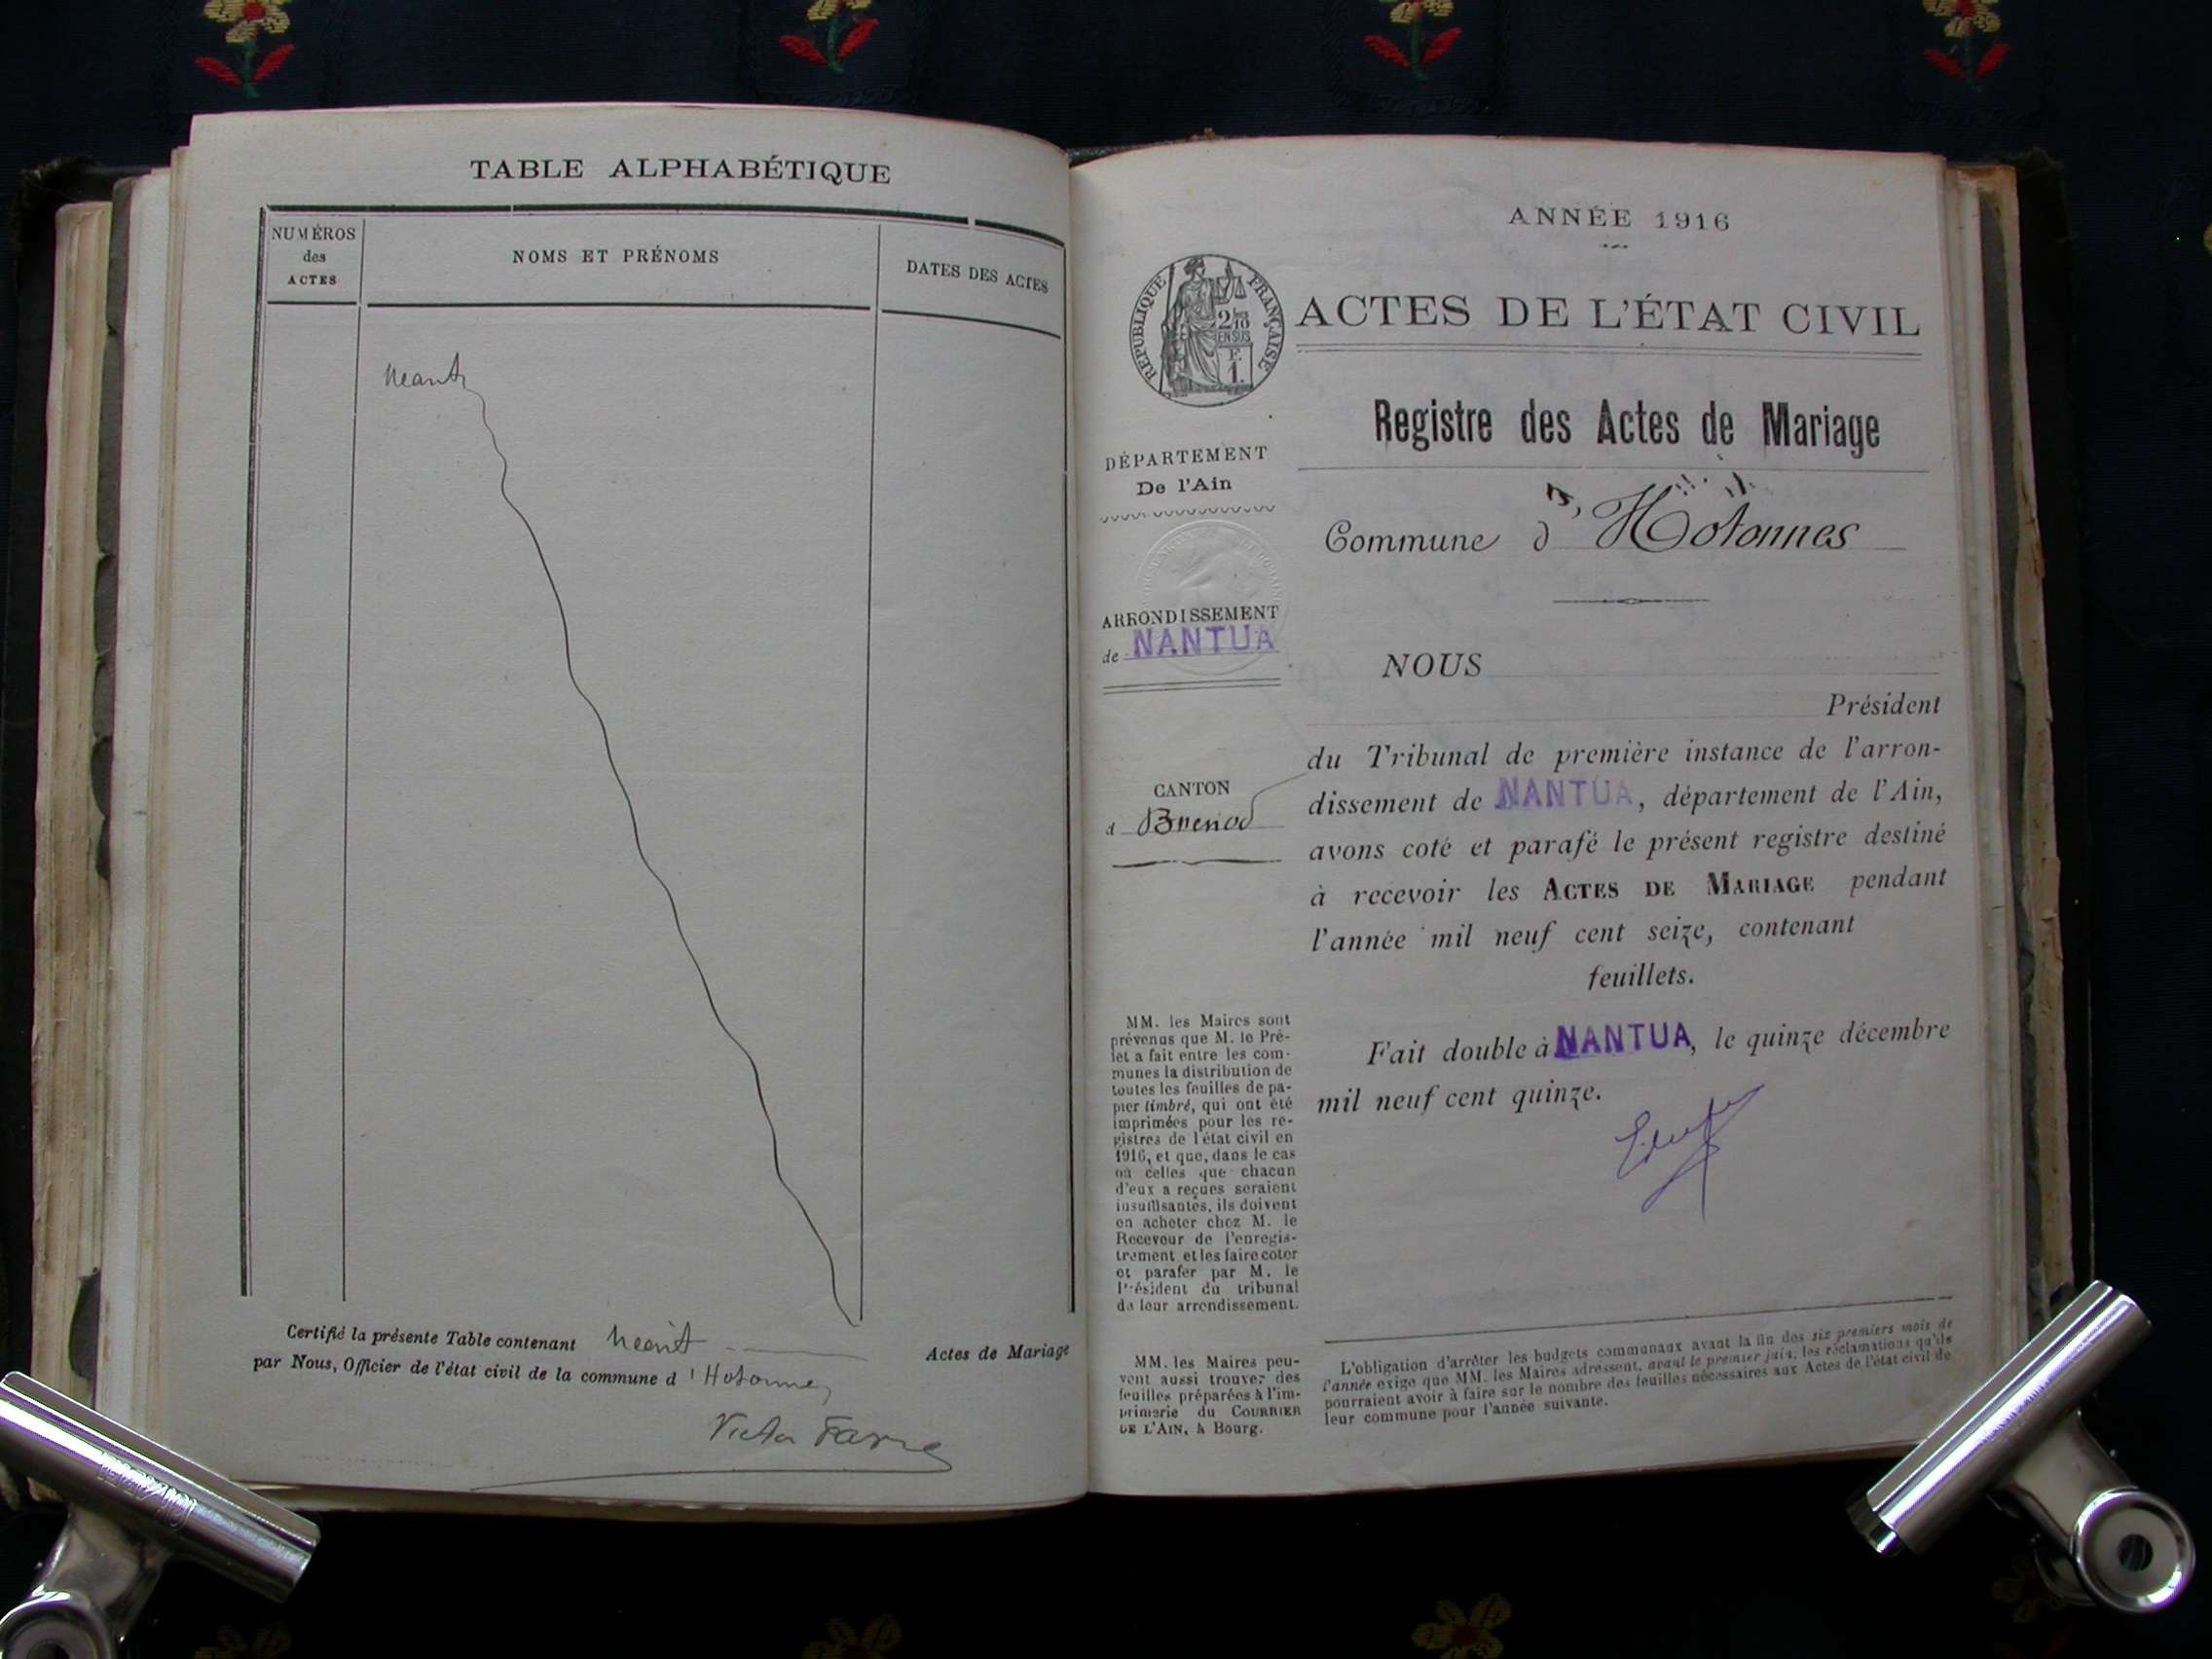 TABLE ALPHABÉTIQUE
NUMÉROS
des
ACTES
NOMS ET PRÉNOMS
DATES DES ACTES
Neant
Certifié la présente Table contenant neant Actes de Mariage
par Nous, Officier de l'état civil de la commune d'Hotonnes
Victor Favre
ANNÉE 1916
RÉPUBLIQUE FRANÇAISE
2/10
EN SUS
F.
1.
ACTES DE L'ÉTAT CIVIL
Registre des Actes de Mariage
DÉPARTEMENT
De l'Ain
Commune d'Hotonnes
ARRONDISSEMENT
de NANTUA
CANTON
d Brenod
NOUS
Président
du Tribunal de première instance de l'arron-
dissement de NANTUA, département de l'Ain,
avons coté et parafé le présent registre destiné
à recevoir les ACTES DE MARIAGE pendant
l'année mil neuf cent seize, contenant
feuillets.
Fait double à NANTUA, le quinze décembre
mil neuf cent quinze.
MM. les Maires sont
prévenus que M. le Pré-
fet a fait entre les com-
munes la distribution de
toutes les feuilles de pa-
pier timbré, qui ont été
imprimées pour les re-
gistres de l'état civil en
1916, et que, dans le cas
où celles que chacun
d'eux a reçues seraient
insuffisantes, ils doivent
en acheter chez M. le
Receveur de l'enregis-
trement et les faire coter
et parafer par M. le
Président du tribunal
de leur arrondissement.
MM. les Maires peu-
vent aussi trouver des
feuilles préparées à l'im-
primerie du COURRIER
DE L'AIN, à Bourg.
L'obligation d'arrêter les budgets communaux avant la fin des six premiers mois de
l'année exige que MM. les Maires adressent, avant le premier juin, les réclamations qu'ils
pourraient avoir à faire sur le nombre des feuilles nécessaires aux Actes de l'état civil de
leur commune pour l'année suivante.